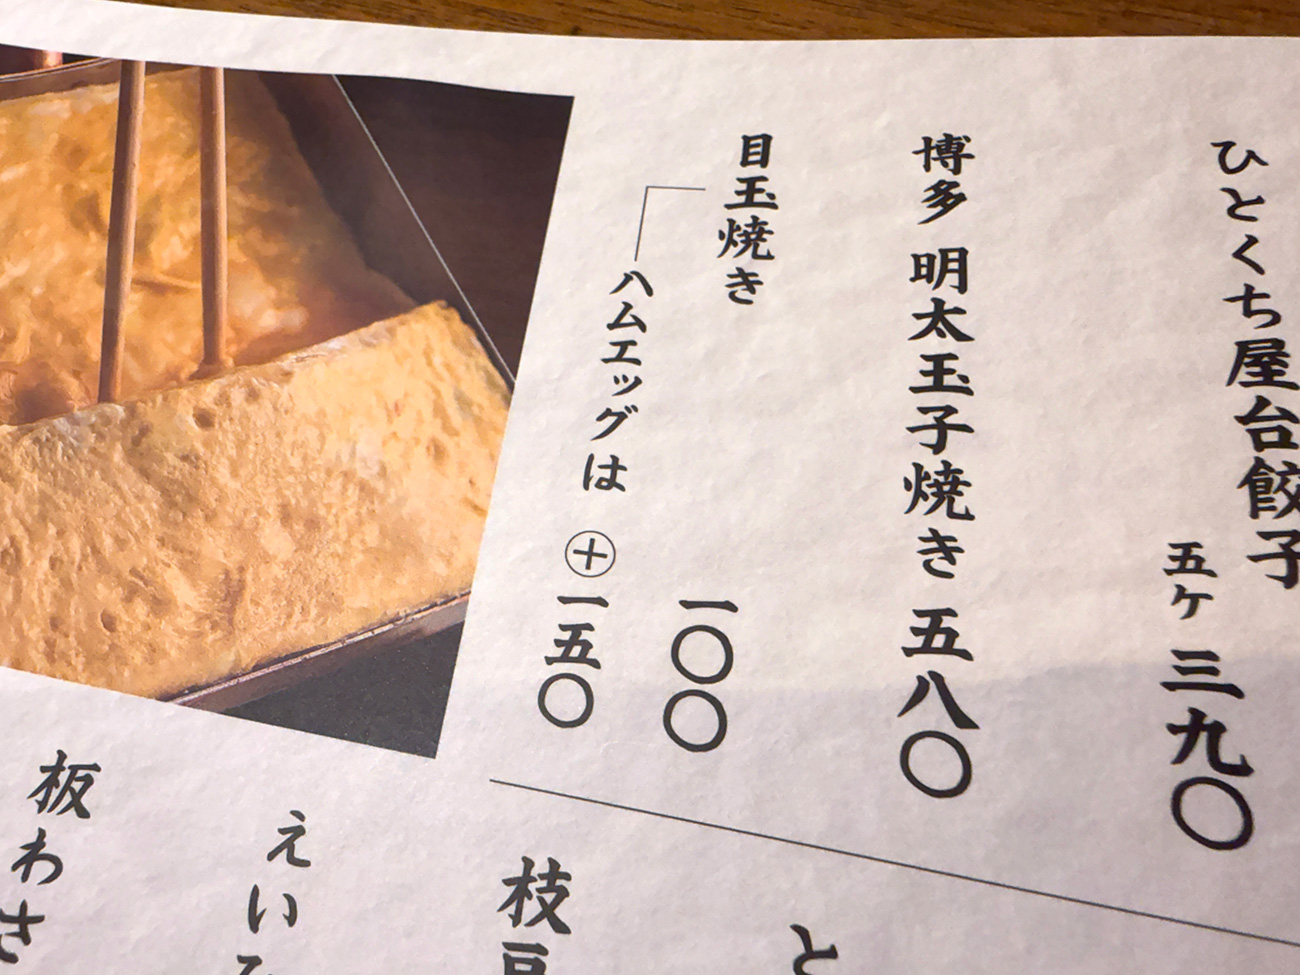 ひとくち屋台餃子
五ケ 三九〇
博多 明太玉子焼き 五八〇
目玉焼き 一〇〇
ハムエッグは ⊕一五〇
と
枝豆
えい
板わさ